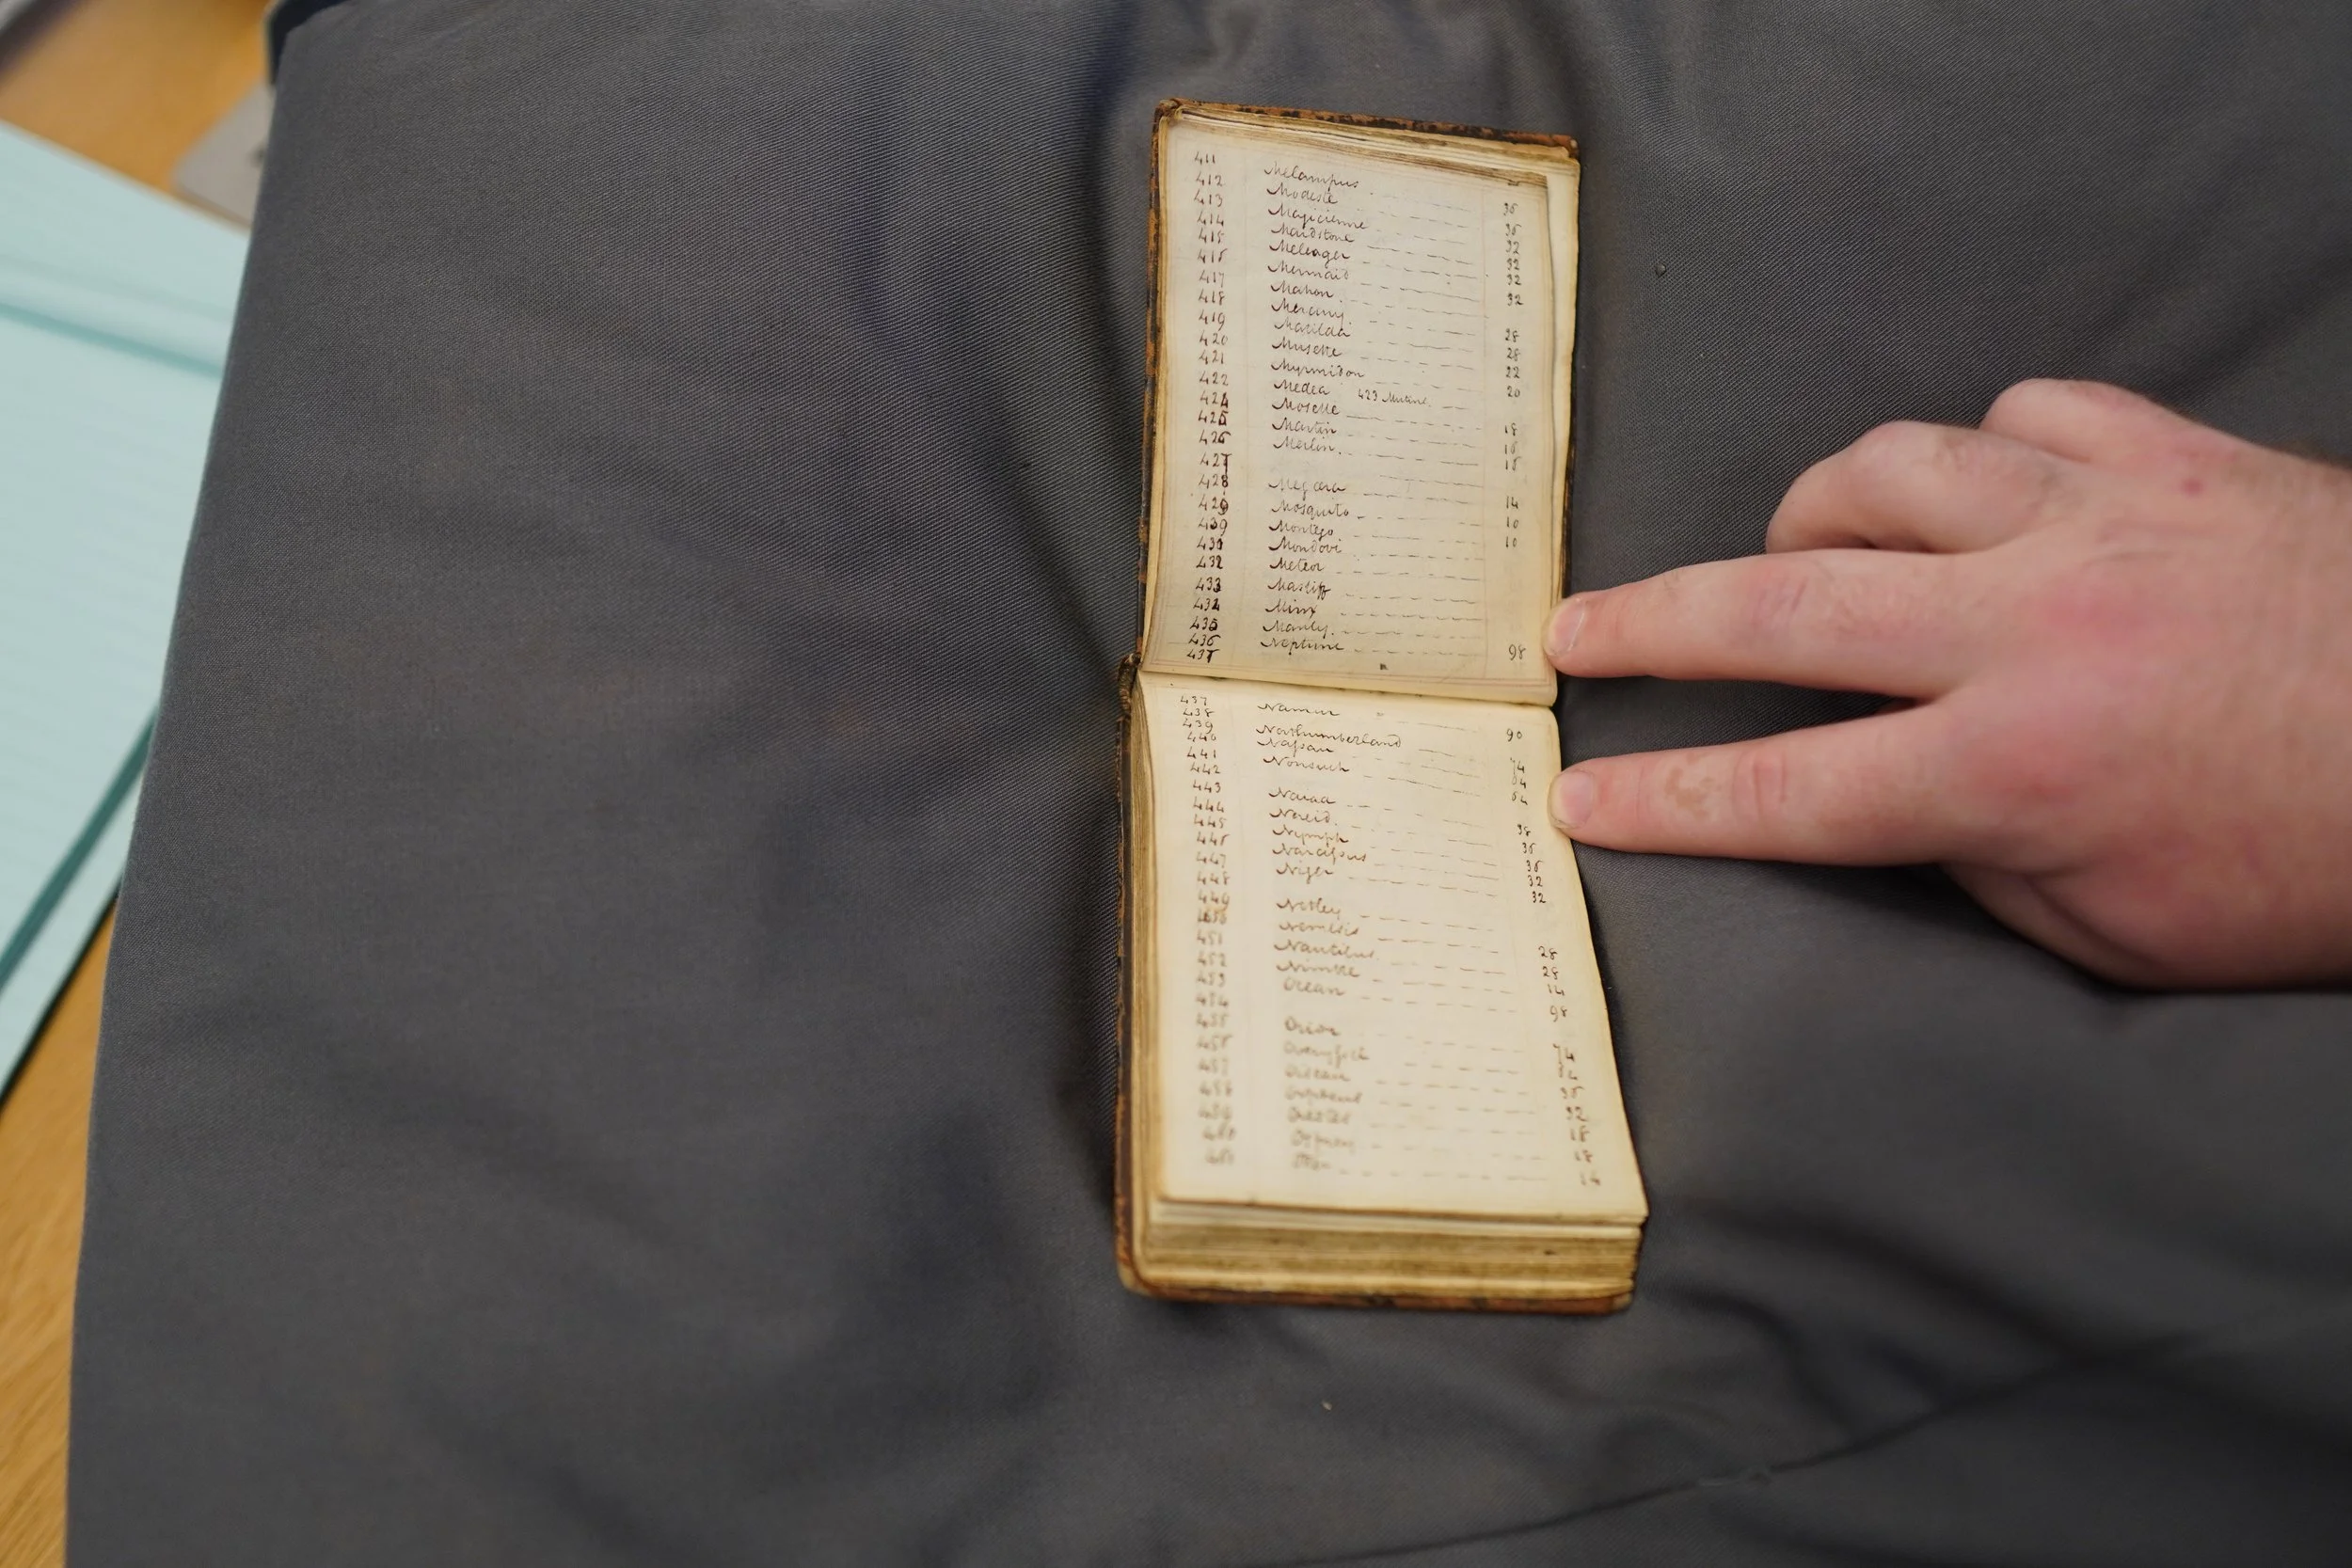 411 Melampus 36
412 Modeste 36
413 Magicienne 32
414 Maidstone 32
415 Meleager 32
416 Mermaid 32
417 Mahon
418 Mercury 28
419 Matilda 28
420 Musette 22
421 Myrmidon 20
422 Medea 423 Mutine
424 Moselle 18
425 Martin 16
426 Merlin 16
427
428 Megæra 14
429 Mosquito 10
430 Montego 10
431 Mondovi
432 Meteor
433 Mastiff
434 Minx
435 Manly
436 Neptune 98
437
437 Namur 90
438
439 Northumberland 74
440 Nassau 64
441 Nonsuch 64
442
443 Naiad 38
444 Nereid 36
445 Nymph 36
446 Narcissus 32
447 Niger 32
448
449 Netley
450 Nemesis 28
451 Nautilus 28
452 Nimble 14
453 Ocean 98
454
455 Orion 74
456 64
457 36
458 Orpheus 32
459 Orestes 18
460 Osprey 18
461 14